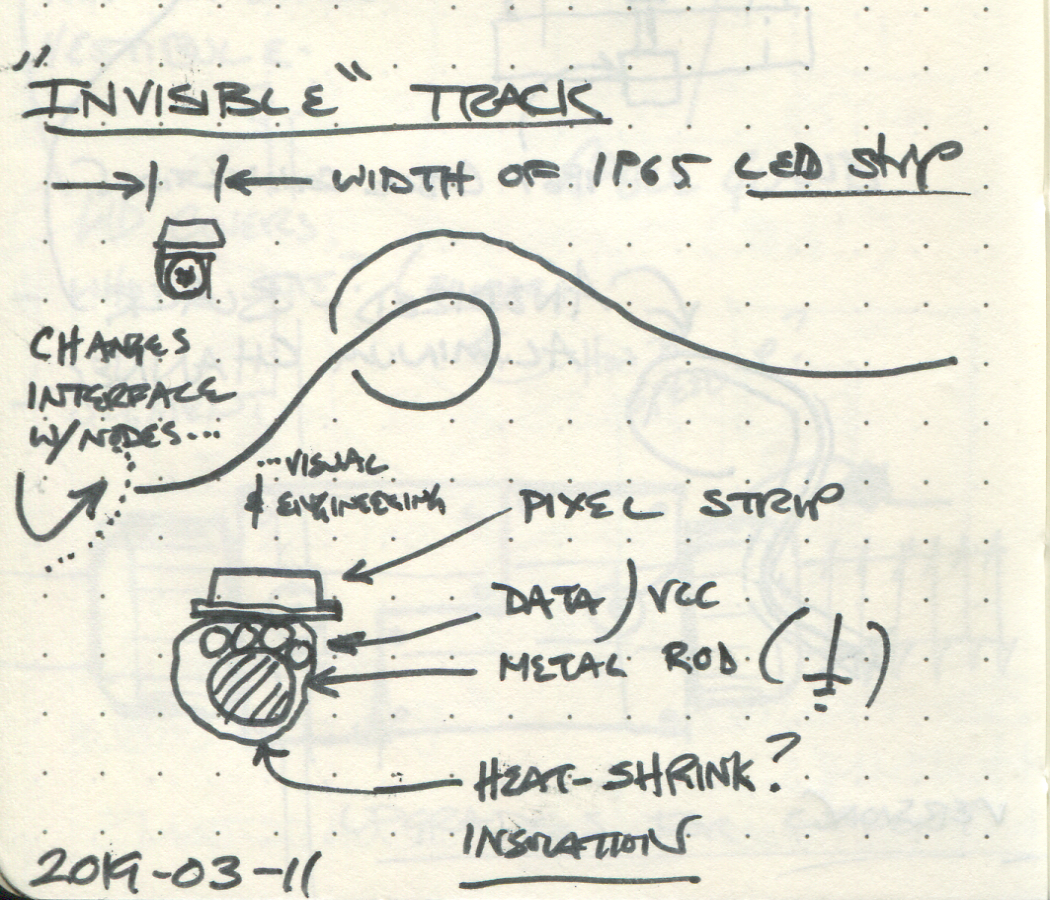 "INVISIBLE" TRACK
WIDTH OF IP65 LED strip
CHANGES
INTERFACE
W/NODES...
...VISUAL
& ENGINEERING
PIXEL STRIP
DATA / VCC
METAL ROD ( )
HEAT-SHRINK?
INSULATION
2019-03-11